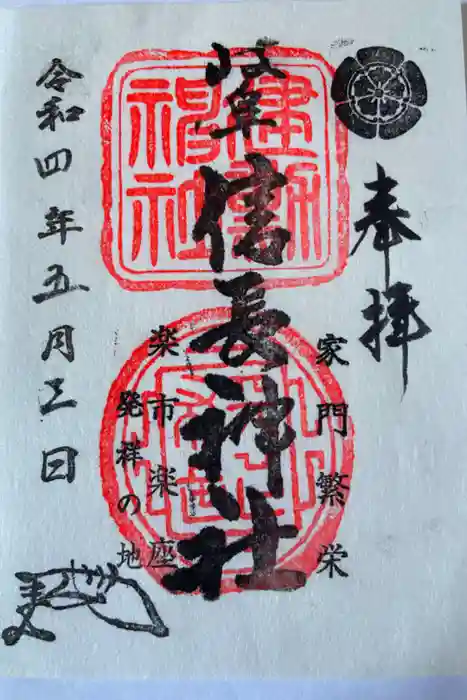 奉拝
家門繁栄
岐阜信長神社
建勲神社
楽市楽座
発祥の地
令和四年五月三日